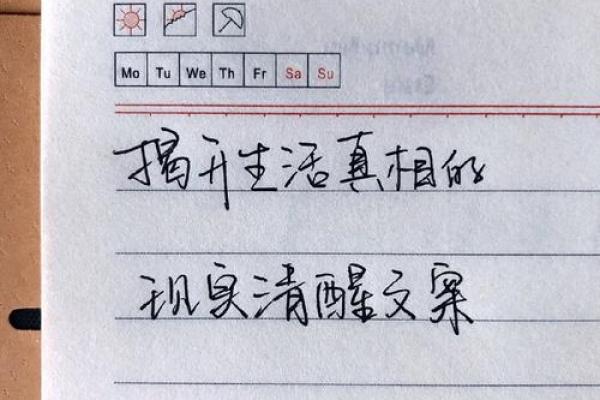 Mo Tu We Th Fr Sa Su
揭开生活真相的
现实清醒文案